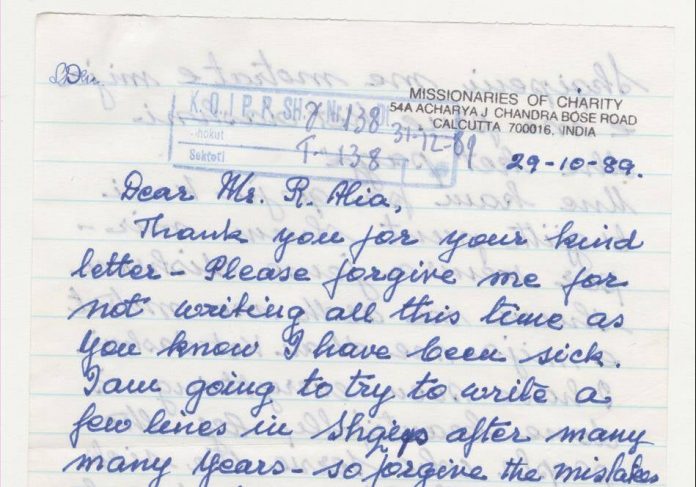 MISSIONARIES OF CHARITY
54A ACHARYA J CHANDRA BOSE ROAD
CALCUTTA 700016. INDIA
K. Q. I P. R. SH.
138
31-12-89
Sektori
138
29-10-89.
Dear Mr. R. Alia,
Thank you for your kind
letter - Please forgive me for
not writing all this time as
you know I have been sick.
I am going to try to write a
few lines in after many
many years - so forgive the mistakes